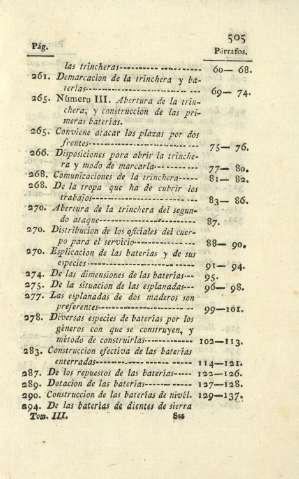 505
Pág. Párrafos.
las trincheras------------ 60— 68.
261. Demarcacion de la trinchera y ba-
terías------------ 69— 74.
265. Número III. Abertura de la trin-
chera, y construccion de las pri-
meras baterías.
265. Conviene atacar los plazas por dos
frentes------------ 75— 76.
266. Disposiciones para abrir la trinche-
ra y modo de marcarla------------ 77— 80.
268. Comunicaciones de la trinchera----- 81— 82.
268. De la tropa que ha de cubrir los
trabajos------------ 83— 86.
270. Abertura de la trinchera del segun-
do ataque------------ 87.
270. Distribucion de los oficiales del cuer-
po para el servicio------------ 88— 90.
270. Esplicacion de las baterías y de sus
especies------------ 91— 94.
274. De las dimensiones de las baterías--- 95.
275. De la situacion de las esplanadas--- 96— 98.
277. Las esplanadas de dos maderos son
preferentes------------ 99—101.
278. Diversas especies de baterías por los
géneros con que se construyen, y
método de construirlas------------ 102—113.
283. Construccion efectiva de las baterías
enterradas------------ 114—121.
287. De los repuestos de las baterías----- 122—126.
289. Dotacion de las baterías------------ 127—128.
290. Construccion de las baterías de nivél. 129—137.
294. De las baterías de dientes de sierra
Tom. III. Sss